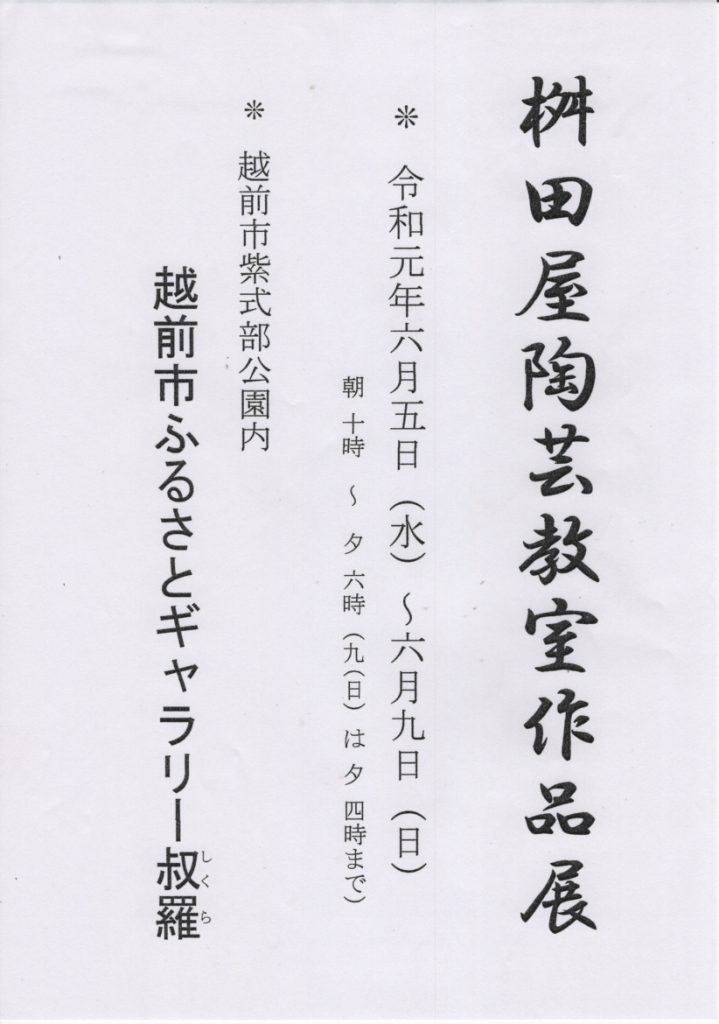 桝田屋陶芸教室作品展
＊ 令和元年六月五日（水）～六月九日（日）
朝 十時 ～ 夕 六時（九(日)は夕 四時まで）
＊ 越前市紫式部公園内
越前市ふるさとギャラリー叔羅
しくら